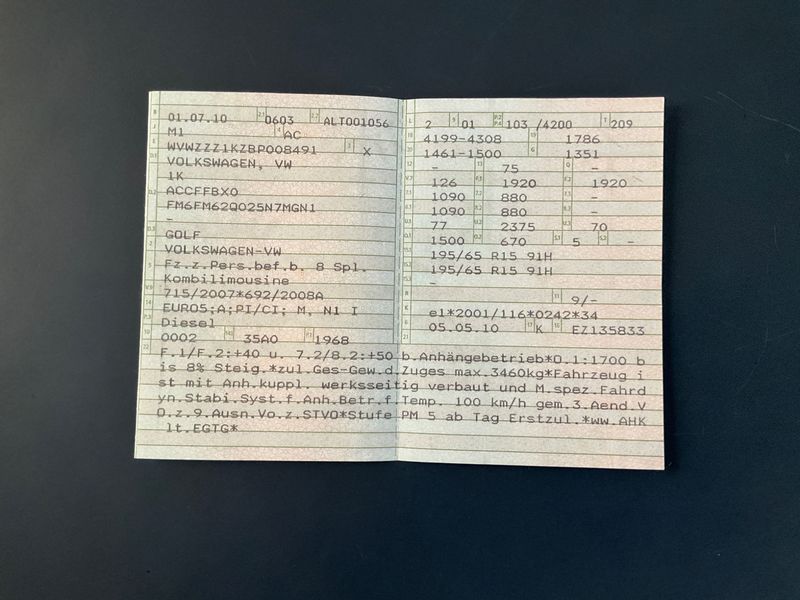 01.07.10 0603 ALT001056
M1 AC
WVWZZZ1KZBP008491 X
VOLKSWAGEN, VW
1K
ACCFFBX0
FM6FM62Q025N7MGN1
-
GOLF
VOLKSWAGEN-VW
Fz.z.Pers.bef.b. 8 Spl.
Kombilimousine
715/2007*692/2008A
EURO5;A;PI/CI; M, N1 I
Diesel
0002 35A0 1968
2 01 103 /4200 209
4199-4308 1786
1461-1500 1351
- 75 -
126 1920 1920
1090 880 -
1090 880 -
77 2375 70
1500 670 5 -
195/65 R15 91H
195/65 R15 91H
-
9/-
e1*2001/116*0242*34
05.05.10 K EZ135833
F.1/F.2:+40 u. 7.2/8.2:+50 b.Anhängebetrieb*O.1:1700 b
is 8% Steig.*zul.Ges-Gew.d.Zuges max.3460kg*Fahrzeug i
st mit Anh.kuppl. werksseitig verbaut und M.spez.Fahrd
yn.Stabi.Syst.f.Anh.Betr.f.Temp. 100 km/h gem.3.Aend.V
O.z.9.Ausn.Vo.z.STVO*Stufe PM 5 ab Tag Erstzul.*ww.AHK
lt.EGTG*